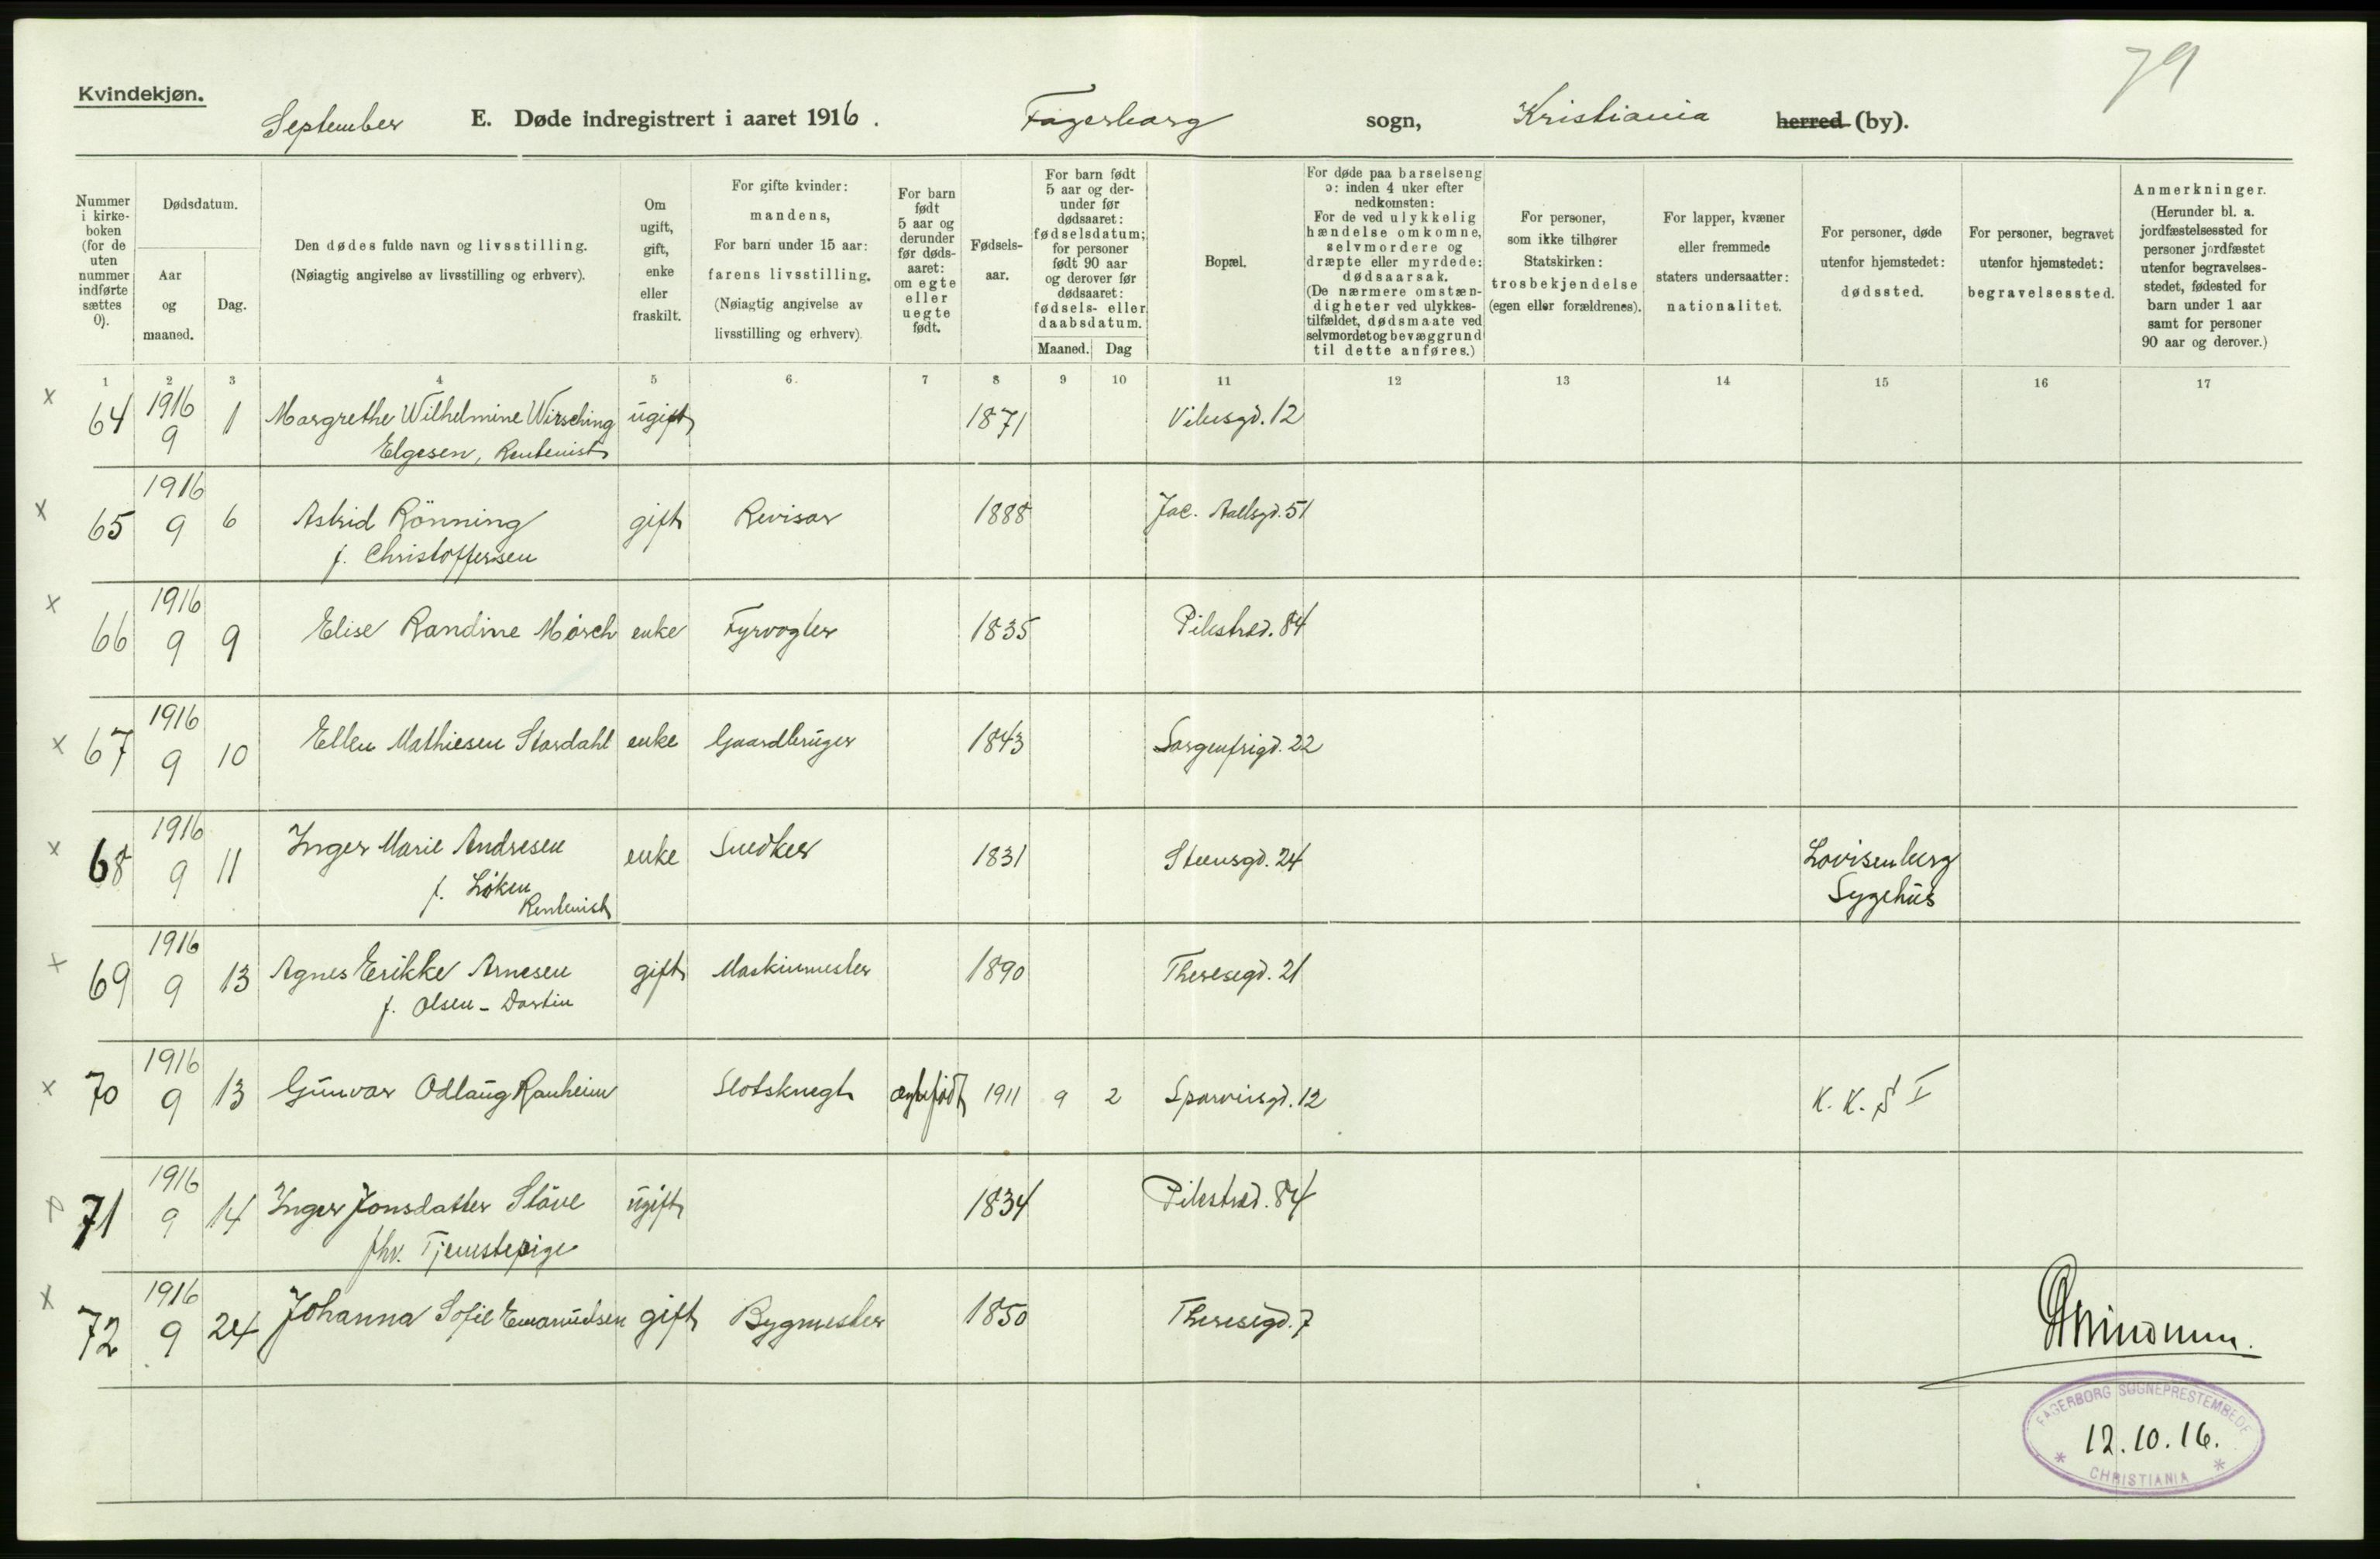 79
Kvindekjøn.
September E. Døde indregistrert i aaret 1916. Fagerborg sogn, Kristiania herred (by).
Nummer i kirkeboken (for de uten nummer indførte sættes 0).
Dødsdatum.
Aar og maaned.
Dag.
Den dødes fulde navn og livsstilling.
(Nøiagtig angivelse av livsstilling og erhverv).
Om ugift, gift, enke eller fraskilt.
For gifte kvinder: mandens, For barn under 15 aar: farens livsstilling. (Nøiagtig angivelse av livsstilling og erhverv).
For barn født 5 aar og derunder før dødsaaret: om egte eller uegte født.
Fødselsaar.
For barn født 5 aar og derunder før dødsaaret: fødselsdatum; for personer født 90 aar og derover før dødsaaret: fødsels- eller daabsdatum.
Maaned. Dag
Bopæl.
For døde paa barselseng ɔ: inden 4 uker efter nedkomsten: For de ved ulykkelig hændelse omkomne, selvmordere og dræpte eller myrdede: dødsaarsak. (De nærmere omstændigheter ved ulykkestilfældet, dødsmaate ved selvmordet og bevæggrund til dette anføres.)
For personer, som ikke tilhører Statskirken: trosbekjendelse (egen eller forældrenes).
For lapper, kvæner eller fremmede staters undersaatter: nationalitet.
For personer, døde utenfor hjemstedet: dødssted.
For personer, begravet utenfor hjemstedet: begravelsessted.
Anmerkninger. (Herunder bl. a. jordfæstelsessted for personer jordfæstet utenfor begravelsesstedet, fødested for barn under 1 aar samt for personer 90 aar og derover.)
1 2 3 4 5 6. 7 8 9 10 11 12 13 14 15 16 17
x 64 1916 9 1 Margrethe Wilhelmine Wirsching ugift 1871 Vibesgd. 12
Elgesen, Rentenist
x 65 1916 9 6 Astrid Rönning gift Revisor 1888 Jac. Aallsgd. 51
f. Christoffersen
x 66 1916 9 9 Elise Randine Mørch enke Fyrvogter 1835 Pilestræd. 84
x 67 1916 9 10 Ellen Mathiesen Stordahl enke Gaardbruger 1843 Sorgenfrigd. 22
x 68 1916 9 11 Inger Marie Andresen enke Snedker 1831 Steensgd. 24 Lovisenberg
f. Løken Sygehus
Rentenist
x 69 1916 9 13 Agnes Erikke Arnesen gift Maskinmester 1890 Theresegd. 21
f. Olsen - Dastin
x 70 1916 9 13 Gunvor Odlaug Ranheim Slotsknegt egtefødt 1911 9 2 Sporveisgd. 12 K. K. S I
71 1916 9 14 Inger Jonsdatter Stäve ugift 1834 Pilestræd. 84
fhv. Tjenestepige
x 72 1916 9 24 Johanna Sofie Emanuelsen gift Bygmester 1850 Theresegd. 7
FAGERBORG SOGNEPRESTEMBEDE
12.10.16.
* CHRISTIANIA *